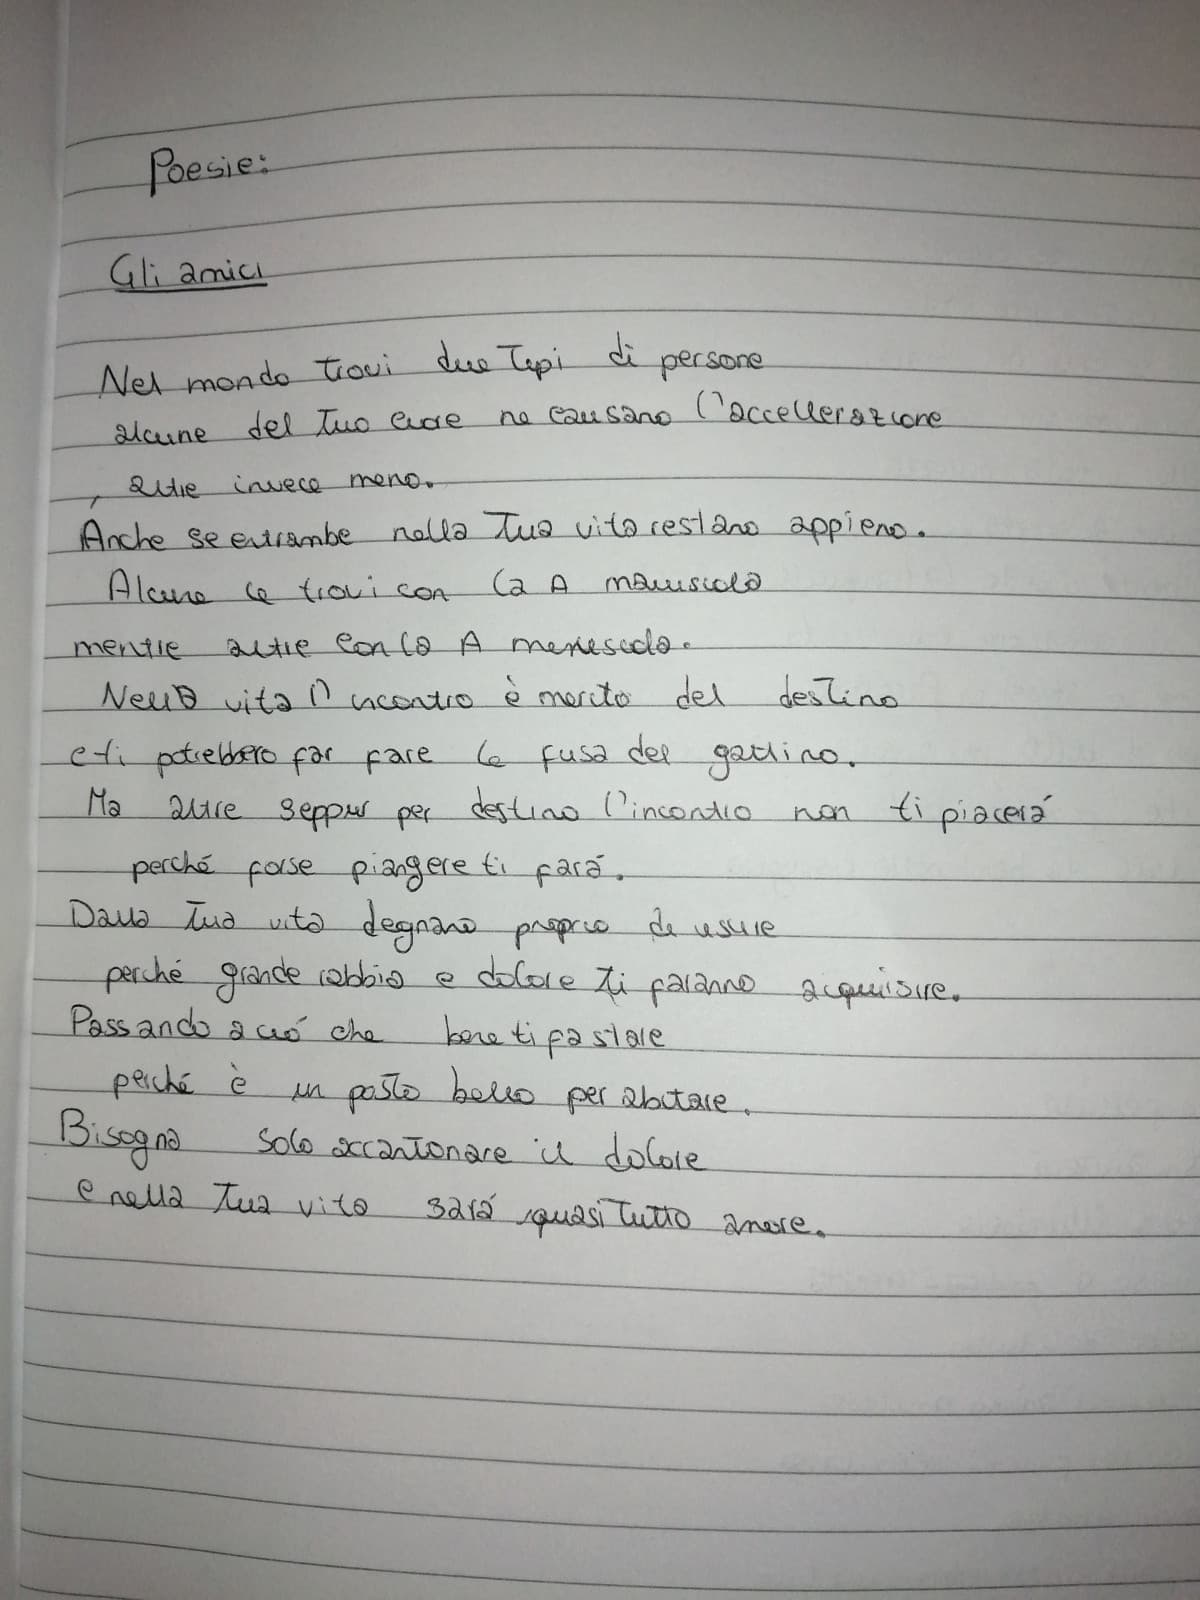 Poesie:
Gli amici
Nel mondo trovi due Tipi di persone
alcune del Tuo cuore ne causano l'accellerazione
, altre invece meno.
Anche se entrambe nella Tua vita restano appieno.
Alcune le trovi con la A maiuscola
mentre altre con la A menescola.
Nella vita l'incontro è merito del destino
e ti potrebbero far fare le fusa del gattino.
Ma altre seppur per destino l'incontro non ti piacerá
perché forse piangere ti fará.
Dalla Tua vita degnano proprio di uscire
perché grande rabbia e dolore Ti faranno acquisire.
Passando a ció che bene ti fa stare
perché è un posto bello per abitare.
Bisogna solo accantonare il dolore
e nella Tua vita sará quasi Tutto amore.